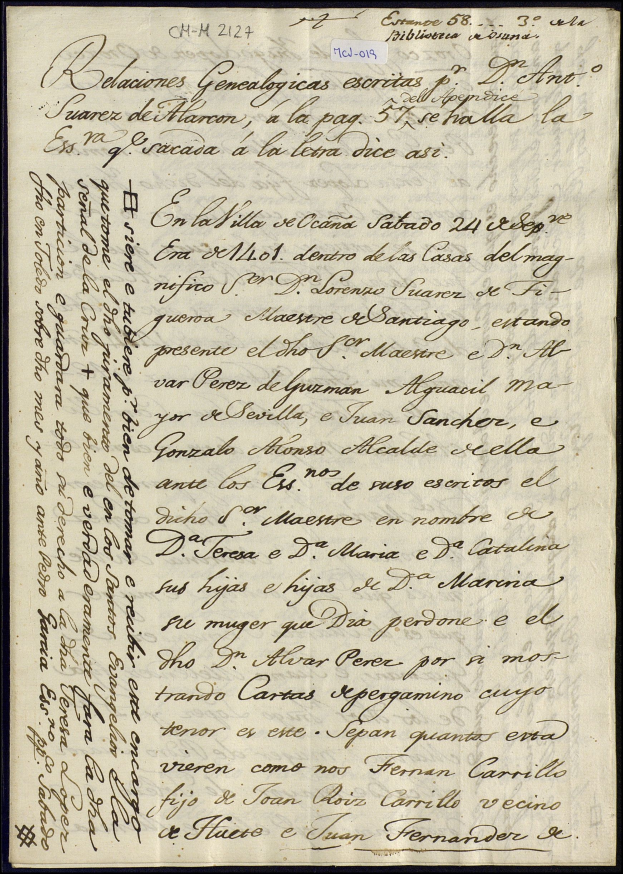 CM-M 2127
MCU-019
Estante 58. ... 3.º de la
Biblioteca de Osuna.
Relaciones Genealogicas escritas p.r D.n Ant.º
del Apendice
Suarez de Alarcon, á la pag. 57 se halla la
Ess.ra q.e sacada á la letra dice asi.
En la Villa de Ocaña Sabado 24 de Sep.ve
Era de 1401. dentro de las Casas del mag-
nifico S.or D.n Lorenzo Suarez de Fi-
gueroa Maestre de Santiago, estando
presente el dho S.or Maestre e D.n Al-
var Perez de Guzman Alguacil ma-
yor de Sevilla, e Juan Sanchez, e
Gonzalo Alonso Alcalde de ella
ante los Ess.nos de suso escritos el
dicho S.or Maestre en nombre de
D.a Teresa e D.a Maria e D.a Catalina
sus hijas e hijas de D.a Marina
su muger que Dia perdone e el
dho D.n Alvar Perez por si mos-
trando Cartas de pergamino cuyo
tenor es este. Sepan quantos esta
vieren como nos Fernan Carrillo
fijo de Joan Roiz Carrillo vecino
de Huete e Juan Fernandez de
siere e tubiere p.r bien de tomar e recibir este encargo
que tome el dho juramento del en los Santos Evangelios e la
señal de la Cruz + que bien e verdaderamente fara la dha
particion e guardara todo su derecho a la dha Teresa Lopez
fho en Toledo sobre dho mes y año ante Pedro Garcia Ess.no p.co Sabado